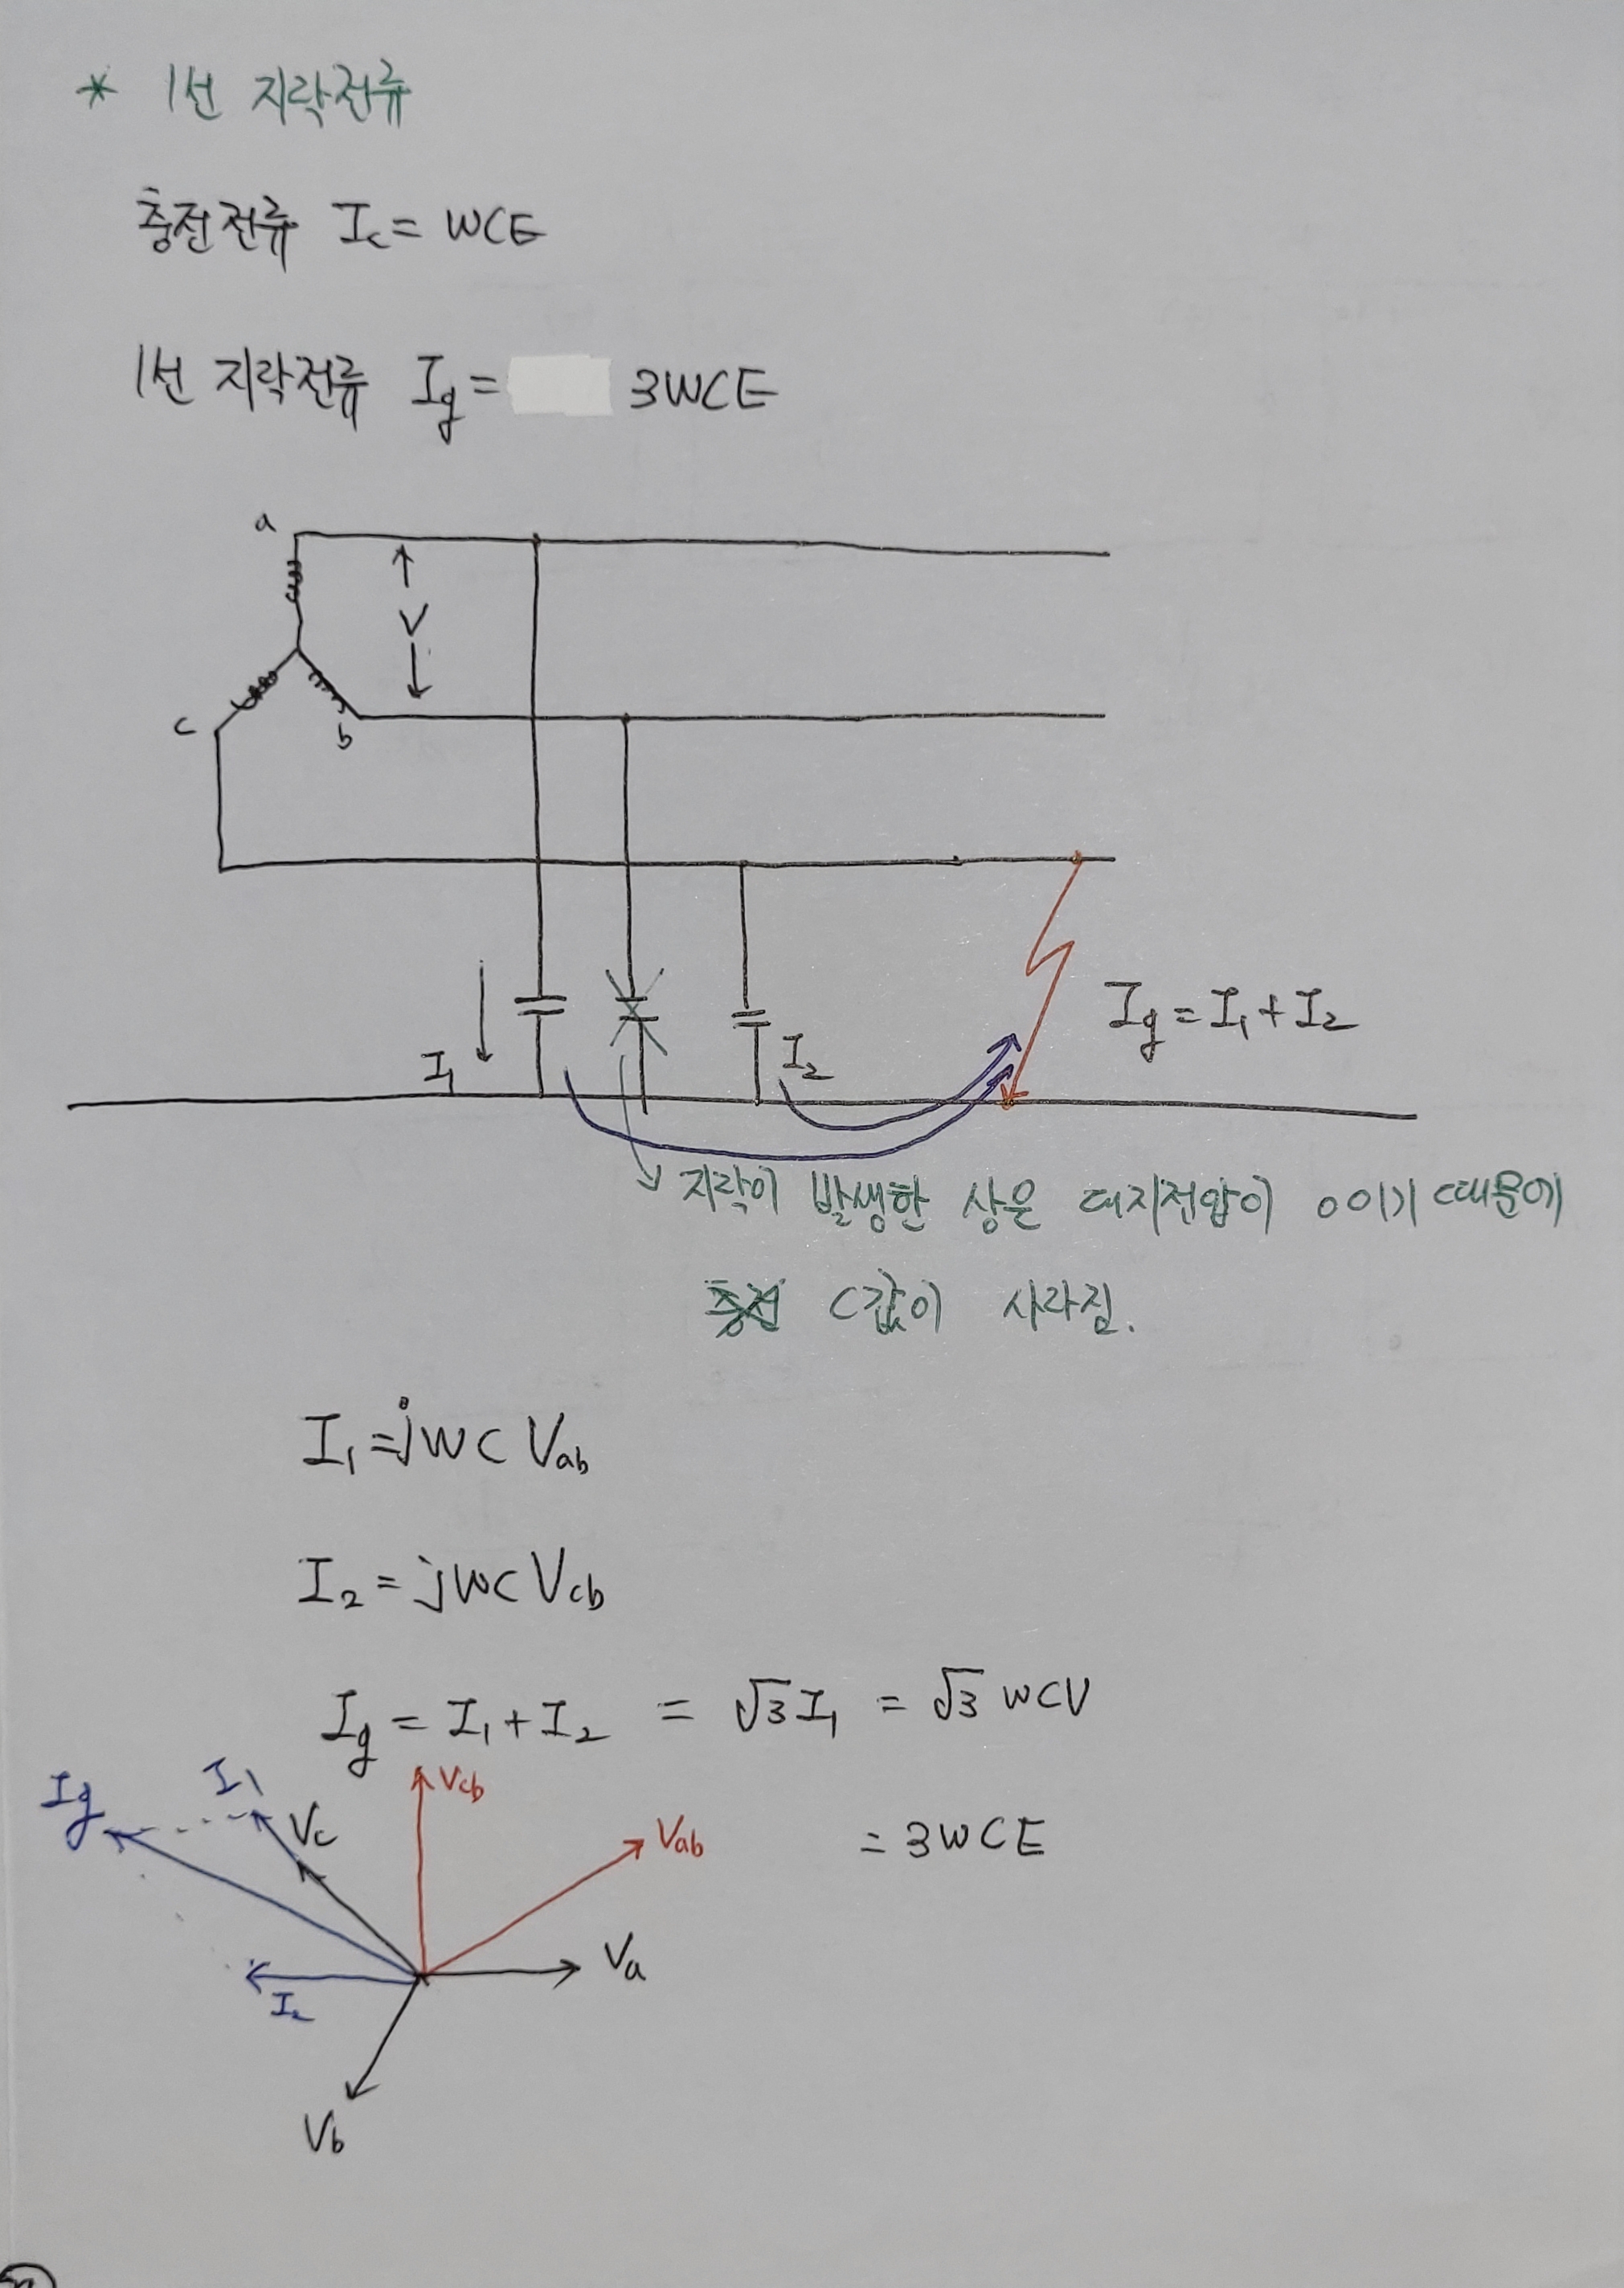 * 1선 지락전류
충전전류 Ic = WCE
1선 지락전류 Ig = 3WCE
a
V
c
b
I1
I2
Ig = I1 + I2
지락이 발생한 상은 대지전압이 0이기 때문에
충전 C값이 사라짐.
I1 = jWC Vab
I2 = jWC Vcb
Ig = I1 + I2 = √3 I1 = √3 WCV
= 3WCE
Ig
I1
Vc
Vcb
Vab
Va
I2
Vb